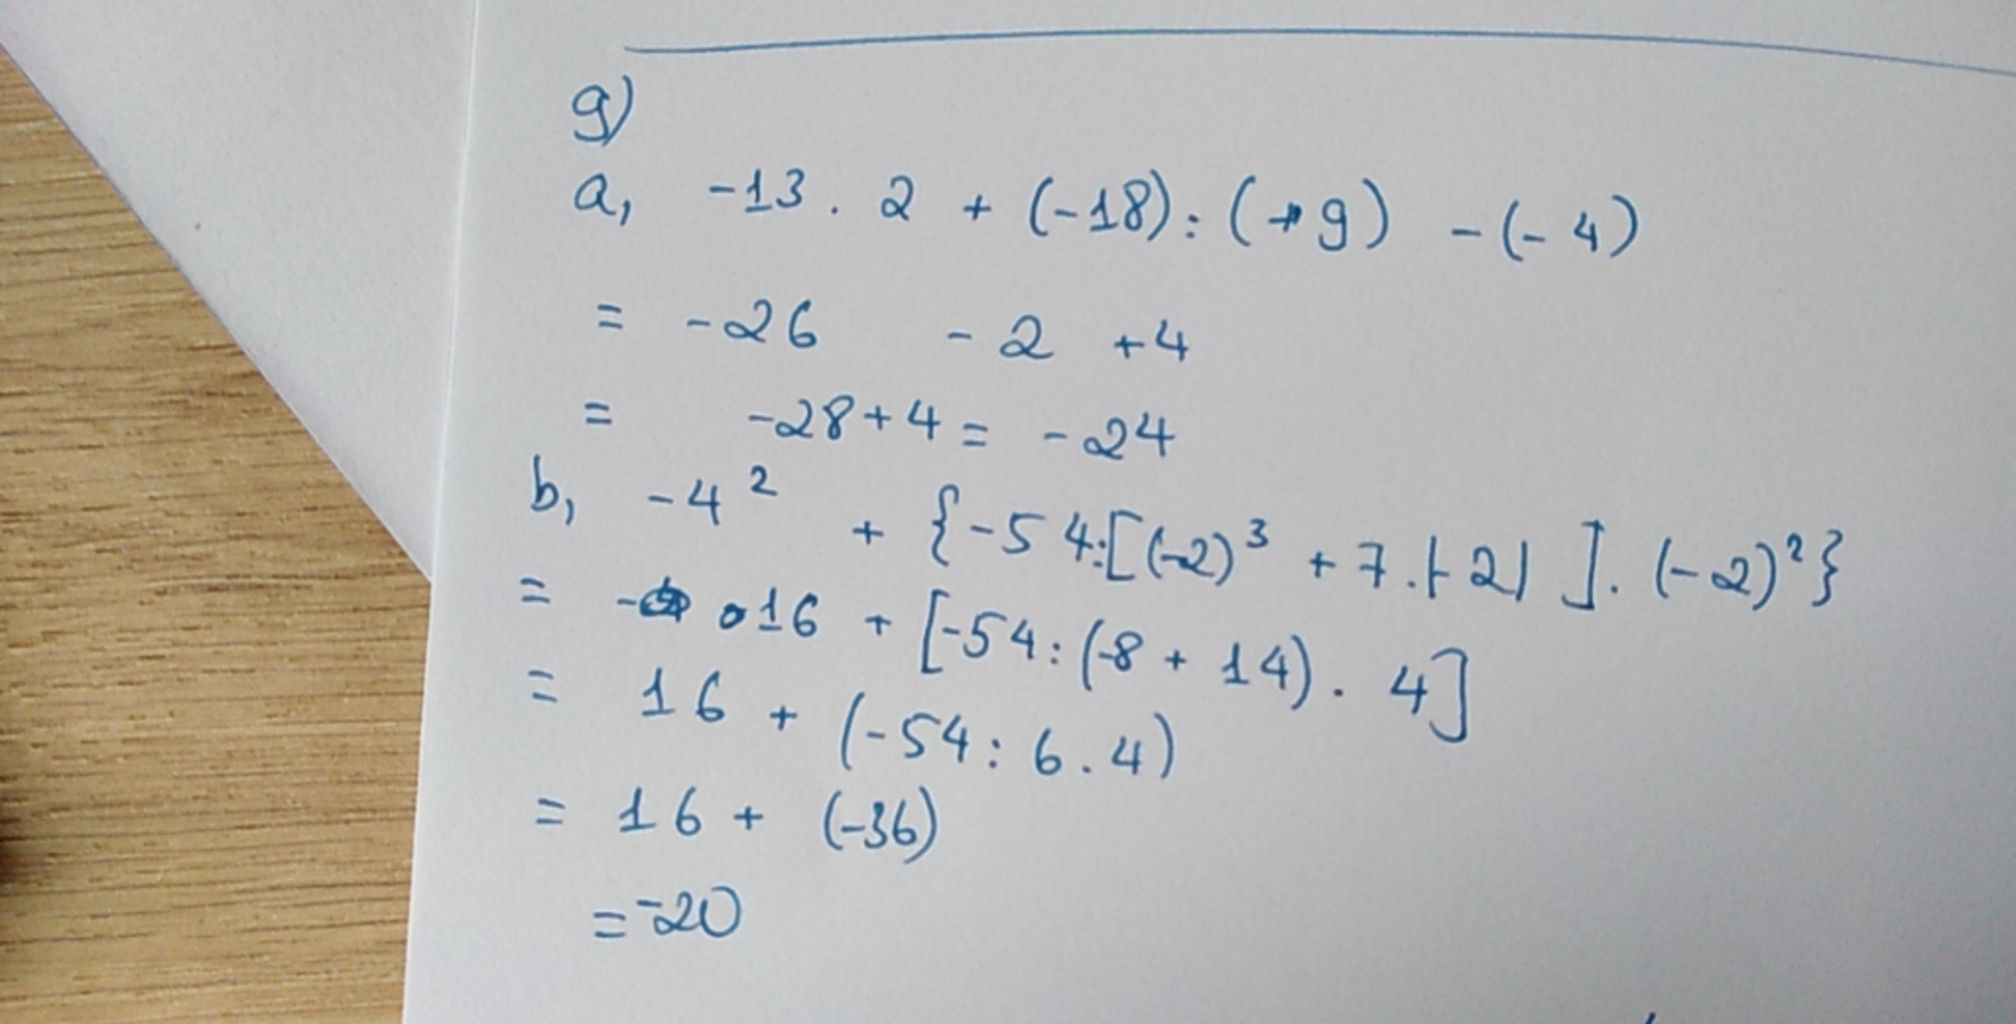 9)
a, -13 . 2 + (-18) : (+9) - (-4)
= -26 - 2 + 4
= -28 + 4 = -24
b, -4² + {-54:[(-2)³ + 7.|-2| ]. (-2)²}
= 16 + [-54 : (-8 + 14) . 4]
= 16 + (-54 : 6 . 4)
= 16 + (-36)
= -20